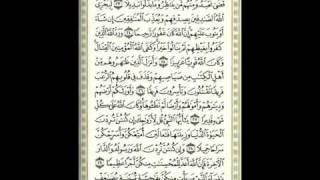 قَضَىٰ نَحْبَهُۥ وَمِنْهُم مَّن يَنتَظِرُ وَمَا بَدَّلُوا۟ تَبْدِيلًا ٢٣ لِّيَجْزِىَ
ٱللَّهُ ٱلصَّـٰدِقِينَ بِصِدْقِهِمْ وَيُعَذِّبَ ٱلْمُنَـٰفِقِينَ إِن شَآءَ
أَوْ يَتُوبَ عَلَيْهِمْ إِنَّ ٱللَّهَ كَانَ غَفُورًا رَّحِيمًا ٢٤ وَرَدَّ ٱللَّهُ ٱلَّذِينَ
كَفَرُوا۟ بِغَيْظِهِمْ لَمْ يَنَالُوا۟ خَيْرًا وَكَفَى ٱللَّهُ ٱلْمُؤْمِنِينَ ٱلْقِتَالَ
وَكَانَ ٱللَّهُ قَوِيًّا عَزِيزًا ٢٥ وَأَنزَلَ ٱلَّذِينَ ظَـٰهَرُوهُم مِّنْ
أَهْلِ ٱلْكِتَـٰبِ مِن صَيَاصِيهِمْ وَقَذَفَ فِى قُلُوبِهِمُ ٱلرُّعْبَ
فَرِيقًا تَقْتُلُونَ وَتَأْسِرُونَ فَرِيقًا ٢٦ وَأَوْرَثَكُمْ أَرْضَهُمْ
وَدِيَـٰرَهُمْ وَأَمْوَٰلَهُمْ وَأَرْضًا لَّمْ تَطَـُٔوهَا وَكَانَ ٱللَّهُ عَلَىٰ كُلِّ
شَىْءٍ قَدِيرًا ٢٧ يَـٰٓأَيُّهَا ٱلنَّبِىُّ قُل لِّأَزْوَٰجِكَ إِن كُنتُنَّ تُرِدْنَ
ٱلْحَيَوٰةَ ٱلدُّنْيَا وَزِينَتَهَا فَتَعَالَيْنَ أُمَتِّعْكُنَّ وَأُسَرِّحْكُنَّ
سَرَاحًا جَمِيلًا ٢٨ وَإِن كُنتُنَّ تُرِدْنَ ٱللَّهَ وَرَسُولَهُۥ وَٱلدَّارَ
ٱلْـَٔاخِرَةَ فَإِنَّ ٱللَّهَ أَعَدَّ لِلْمُحْسِنَـٰتِ مِنكُنَّ أَجْرًا عَظِيمًا ٢٩
يَـٰنِسَآءَ ٱلنَّبِىِّ مَن يَأْتِ مِنكُنَّ بِفَـٰحِشَةٍ مُّبَيِّنَةٍ يُضَـٰعَفْ